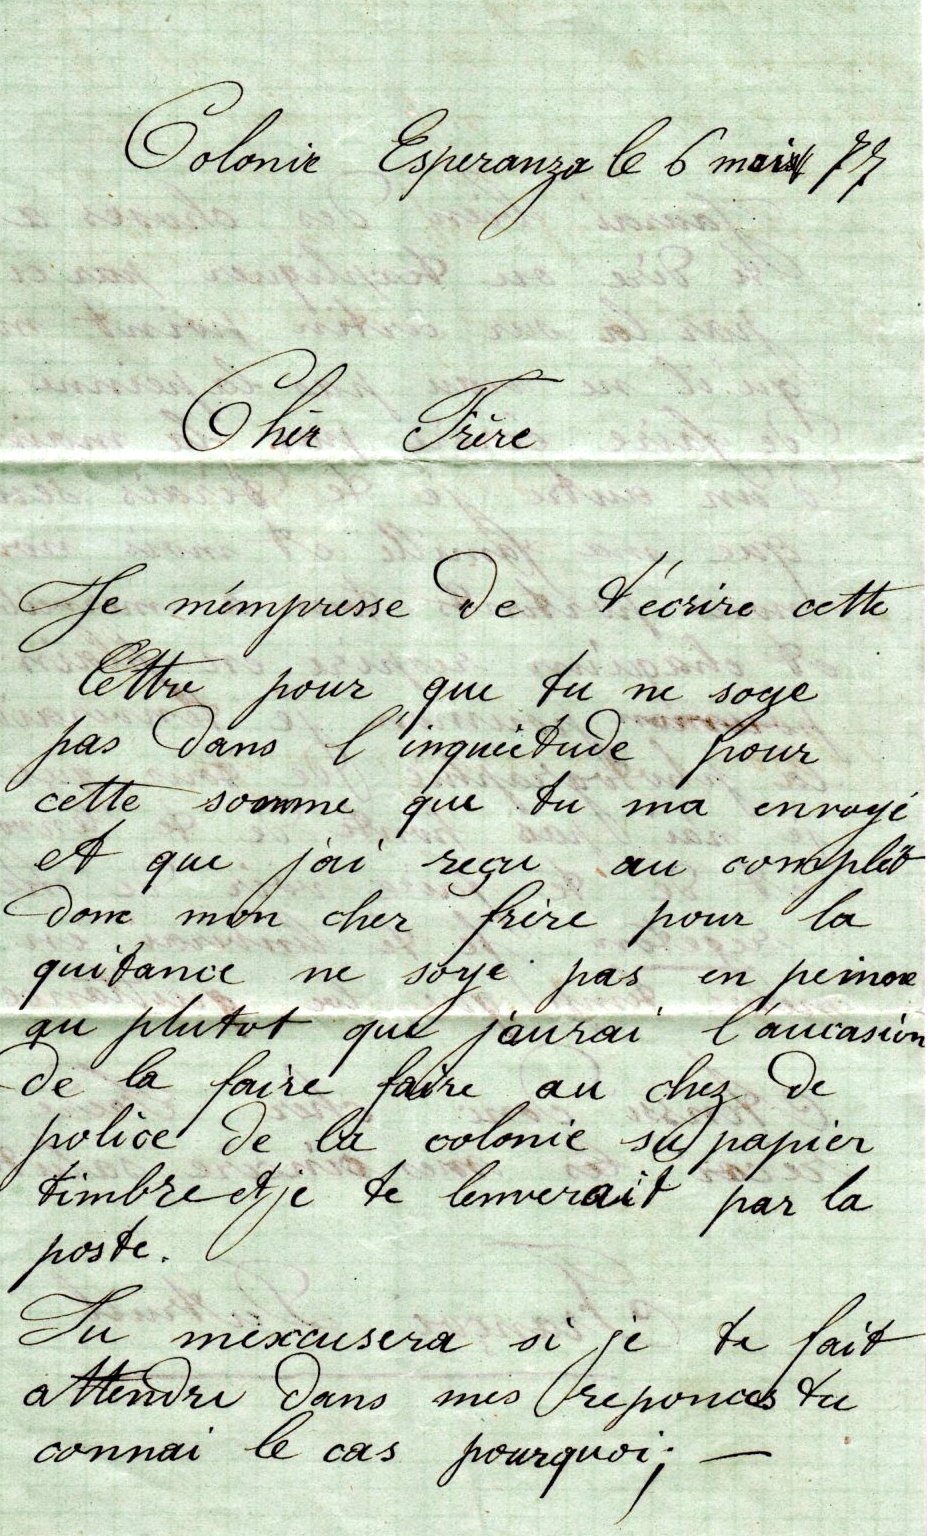 Colonie Esperanza le 6 mais 77
Chèr Frère
Je m'émpresse de t'écrire cette
lettre pour que tu ne soye
pas dans l'inquietude pour
cette somme que tu ma envoyé
et que j'ai reçu au complèt
donc mon cher frère pour la
quitance ne soye pas en peine
au plutot que j'aurai l'aucasion
de la faire faire au chez de
police de la colonie su papier
timbre et je te lenverait par la
poste.
Tu mexcusera si je te fait
attendre dans mes reponces tu
connai le cas pourquoi; —